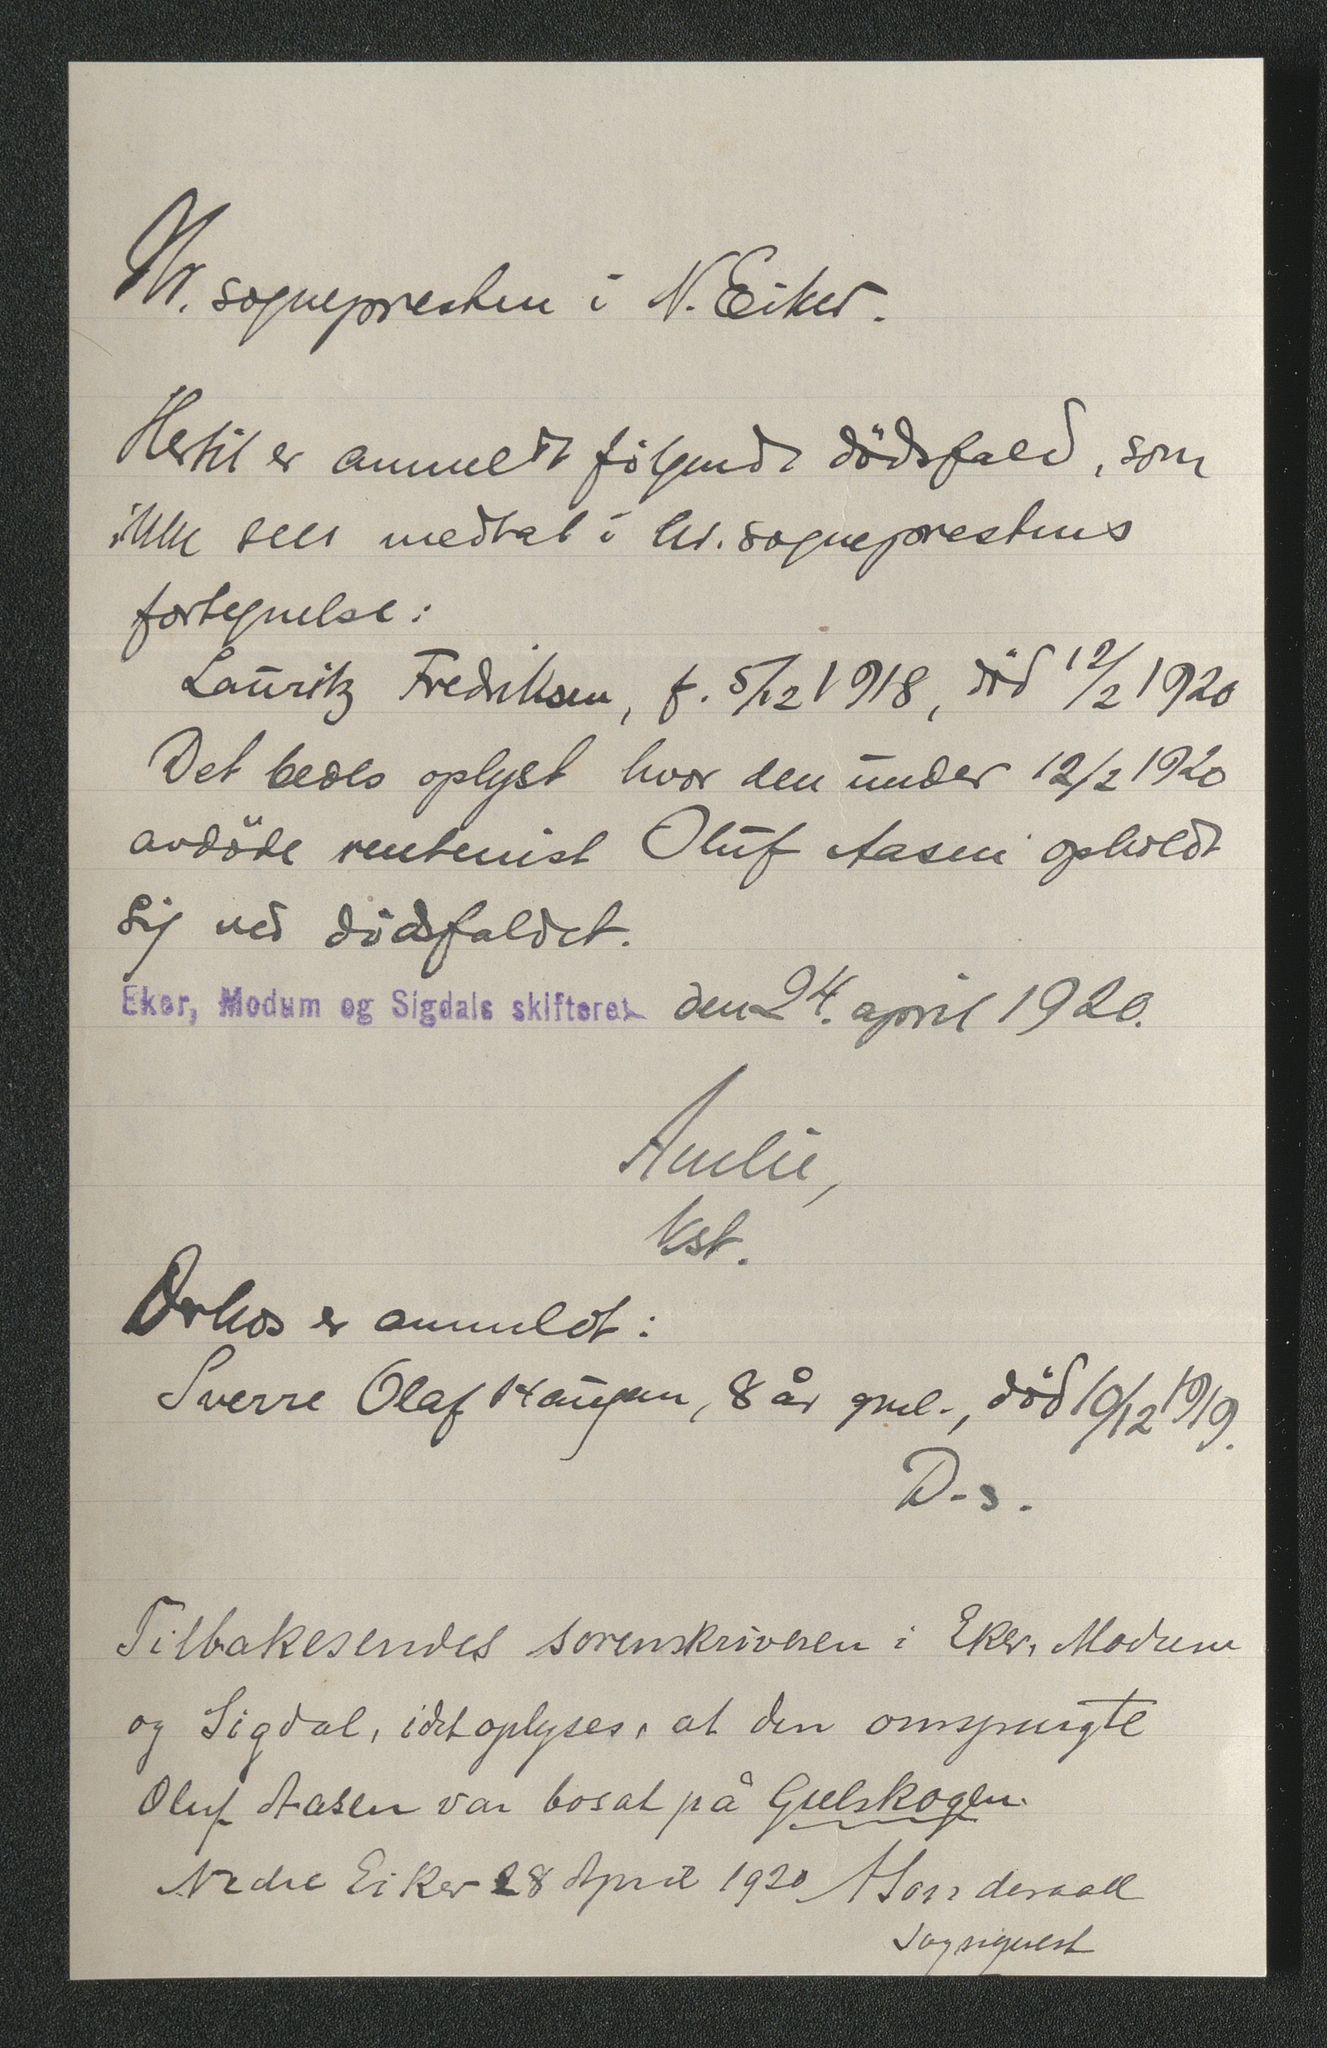 Hr. sognepresten i N. Eiker.
Hertil er anmeldt følgende dødsfald, som
ikke sees medtat i hr. sogneprestens
fortegnelse:
Lauritz Fredriksen, f. 5/12 1918, död 12/2 1920
Det bedes oplyst hvor den under 12/2 1920
avdöde rentenist Oluf Aasen opholdt
sig ved dødsfaldet.
Eker, Modum og Sigdals skifteret den 24. april 1920.
Amlie,
kst.
Derhos er anmeldt:
Sverre Olaf Haugen, 8 år gml., död 10/12 1919.
D.s.
Tilbakesendes sorenskriveren i Eker, Modum
og Sigdal, idet oplyses, at den omspurgte
Oluf Aasen var bosat på Gulskogen.
Nedre Eiker 28 April 1920
sogneprest